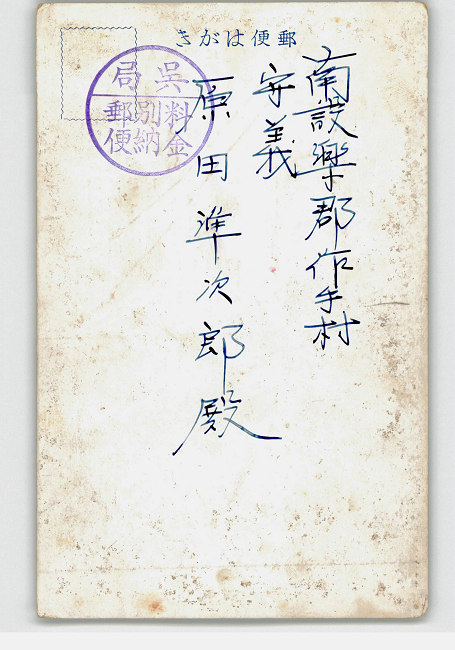 きがは便郵
呉局
料金
別納
郵便
南設樂郡作手村
守義
原田準次郎殿